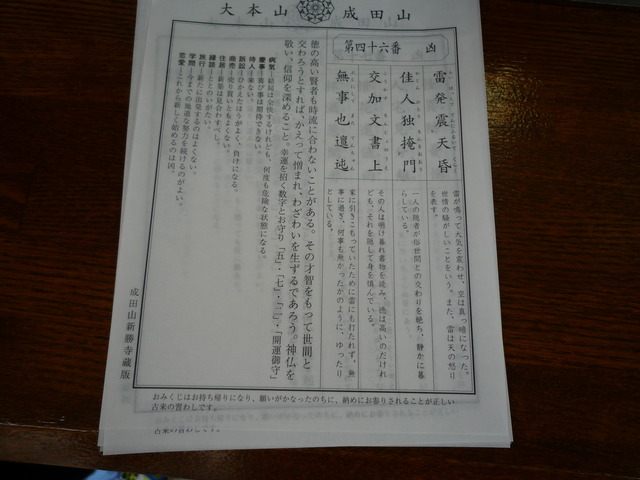 大本山 成田山
第四十六番 凶
雷発震天昏
佳人独掩門
交加文書上
無事也遭迍
雷が鳴って大気を震わせ、空は真っ暗になった。
世情の騒がしいことをいう。また、雷は天の怒り
を表す。
一人の隠者が俗世間との交わりを絶ち、静かに暮
らしている。
その人は明け暮れ書物を読み、徳は高いのだけれ
ども、それを隠して身を慎んでいる。
家に引きこもっていたために雷にも打たれず、無
事に過ぎ、何事も無かったかのように、ゆったり
としている。
徳の高い賢者も時流に合わないことがある。その才智をもって世間と
交わろうとすれば、かえって憎まれ、わざわいを生ずるであろう。神仏を
敬い、信仰を深めること。幸運を招く数字とお守り「五」・「七」・「二」・「開運御守」
病気─結局は全快するけれども、何度も危険な状態になる。
慶事─喜び事は期待できない。
待人─来ない。
訴訟─ひかえたほうがよく、負けになる。
商売─売り買いともよくない。
住居─新築は見合わすべし。
縁談─ととのいがたい。
旅行─新たに出発するのはよくない。
学問─今までの地道な努力を続けるのがよい。
恋愛─これから新しく始めるのは凶。
成田山新勝寺蔵版
おみくじはお持ち帰りになり、願いがかなったのちに、納めにお寄りされることが正しい
古来の習わしです。
古来の習わしです。